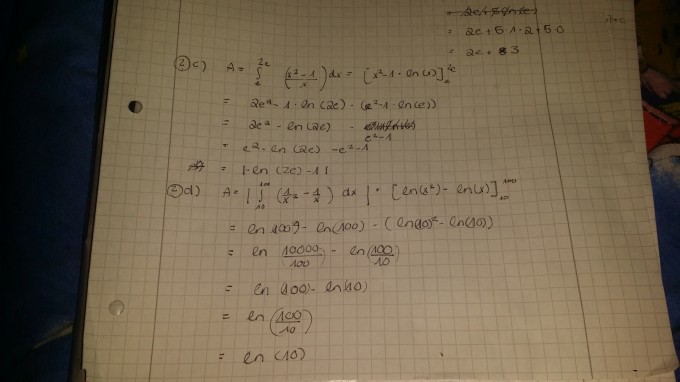 = 2e + 5·1·2 + 5·0
= 2e + 3
② c) A = ∫ₑ²ᵉ (x²-1/x) dx = [x²-1·ln(x)]ₑ²ᵉ
= 2e² - 1·ln(2e) - (e²-1·ln(e))
= 2e² - ln(2e) - e²-1
= e² - ln(2e) - e²-1
= |-ln(2e)-1|
② d) A = |∫₁₀¹⁰⁰ (1/x² - 1/x) dx| = [ln(x²) - ln(x)]₁₀¹⁰⁰
= ln 100² - ln(100) - (ln(10)² - ln(10))
= ln (10000/100) - ln(100/10)
= ln (100) - ln(10)
= ln (100/10)
= ln (10)